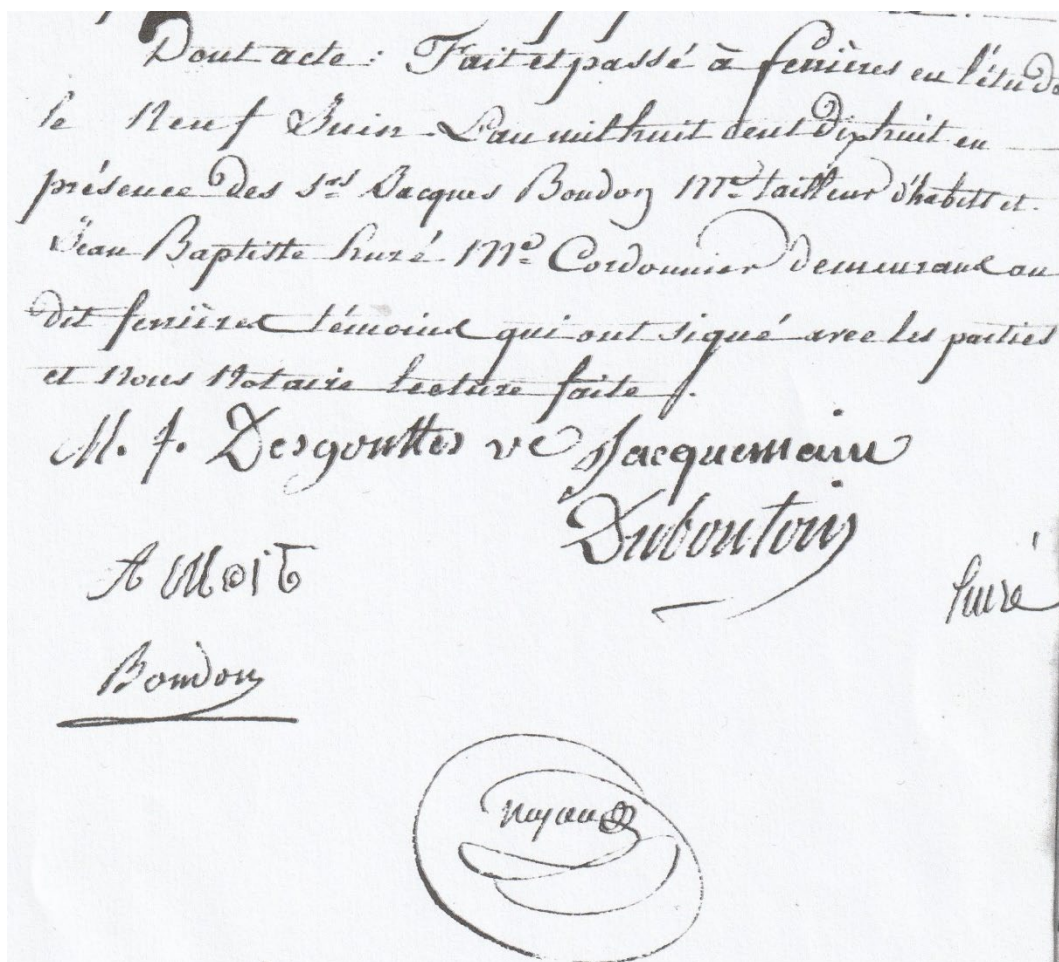 Dont acte : Fait et passé à ferrières en l'étude
le Neuf Juin L'an mil huit cent dix huit en
présence des Srs Jacques Boudon Me tailleur d'habits et
Jean Baptiste huré Me Cordonnier demeurant au
dit ferrières témoins qui ont signé avec les parties
et Nous Notaire lecture faite .
M. f. Desgouttes ve Jacquemain
Duboutoin
A Moit
huré
Boudon